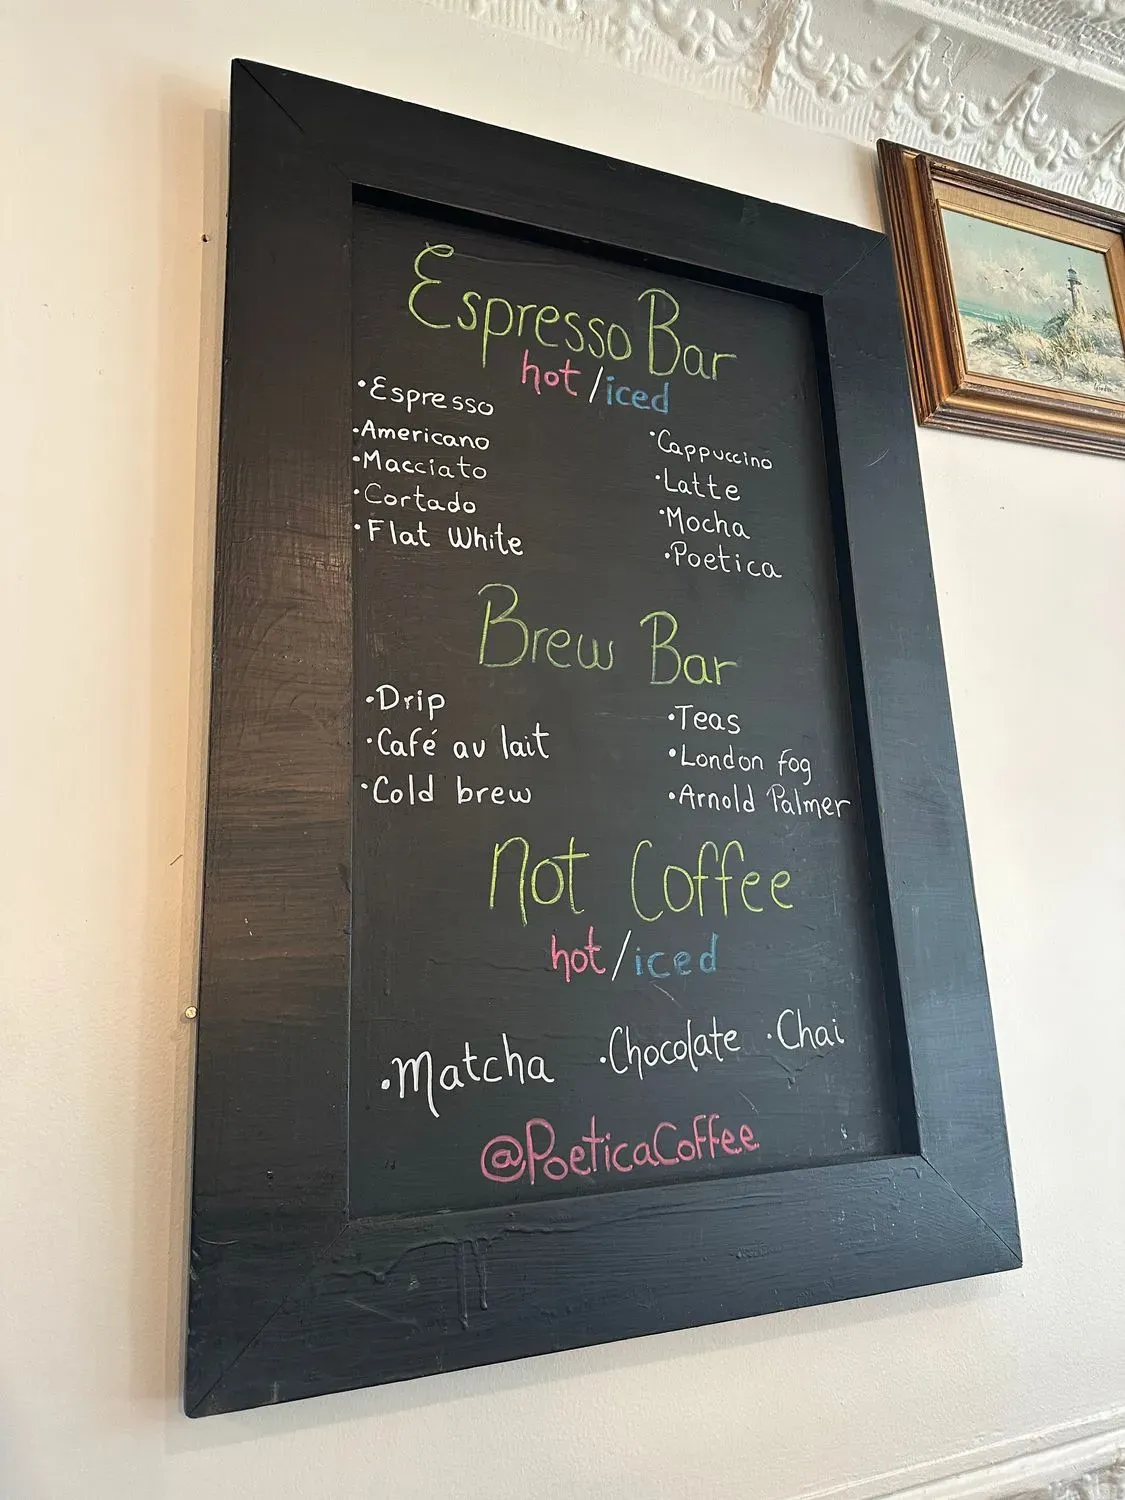 Espresso Bar
hot/iced
•Espresso
•Americano
•Macciato
•Cortado
•Flat White
•Cappuccino
•Latte
•Mocha
•Poetica
Brew Bar
•Drip
•Café au lait
•Cold brew
•Teas
•London fog
•Arnold Palmer
Not Coffee
hot/iced
•Matcha •Chocolate •Chai
@PoeticaCoffee